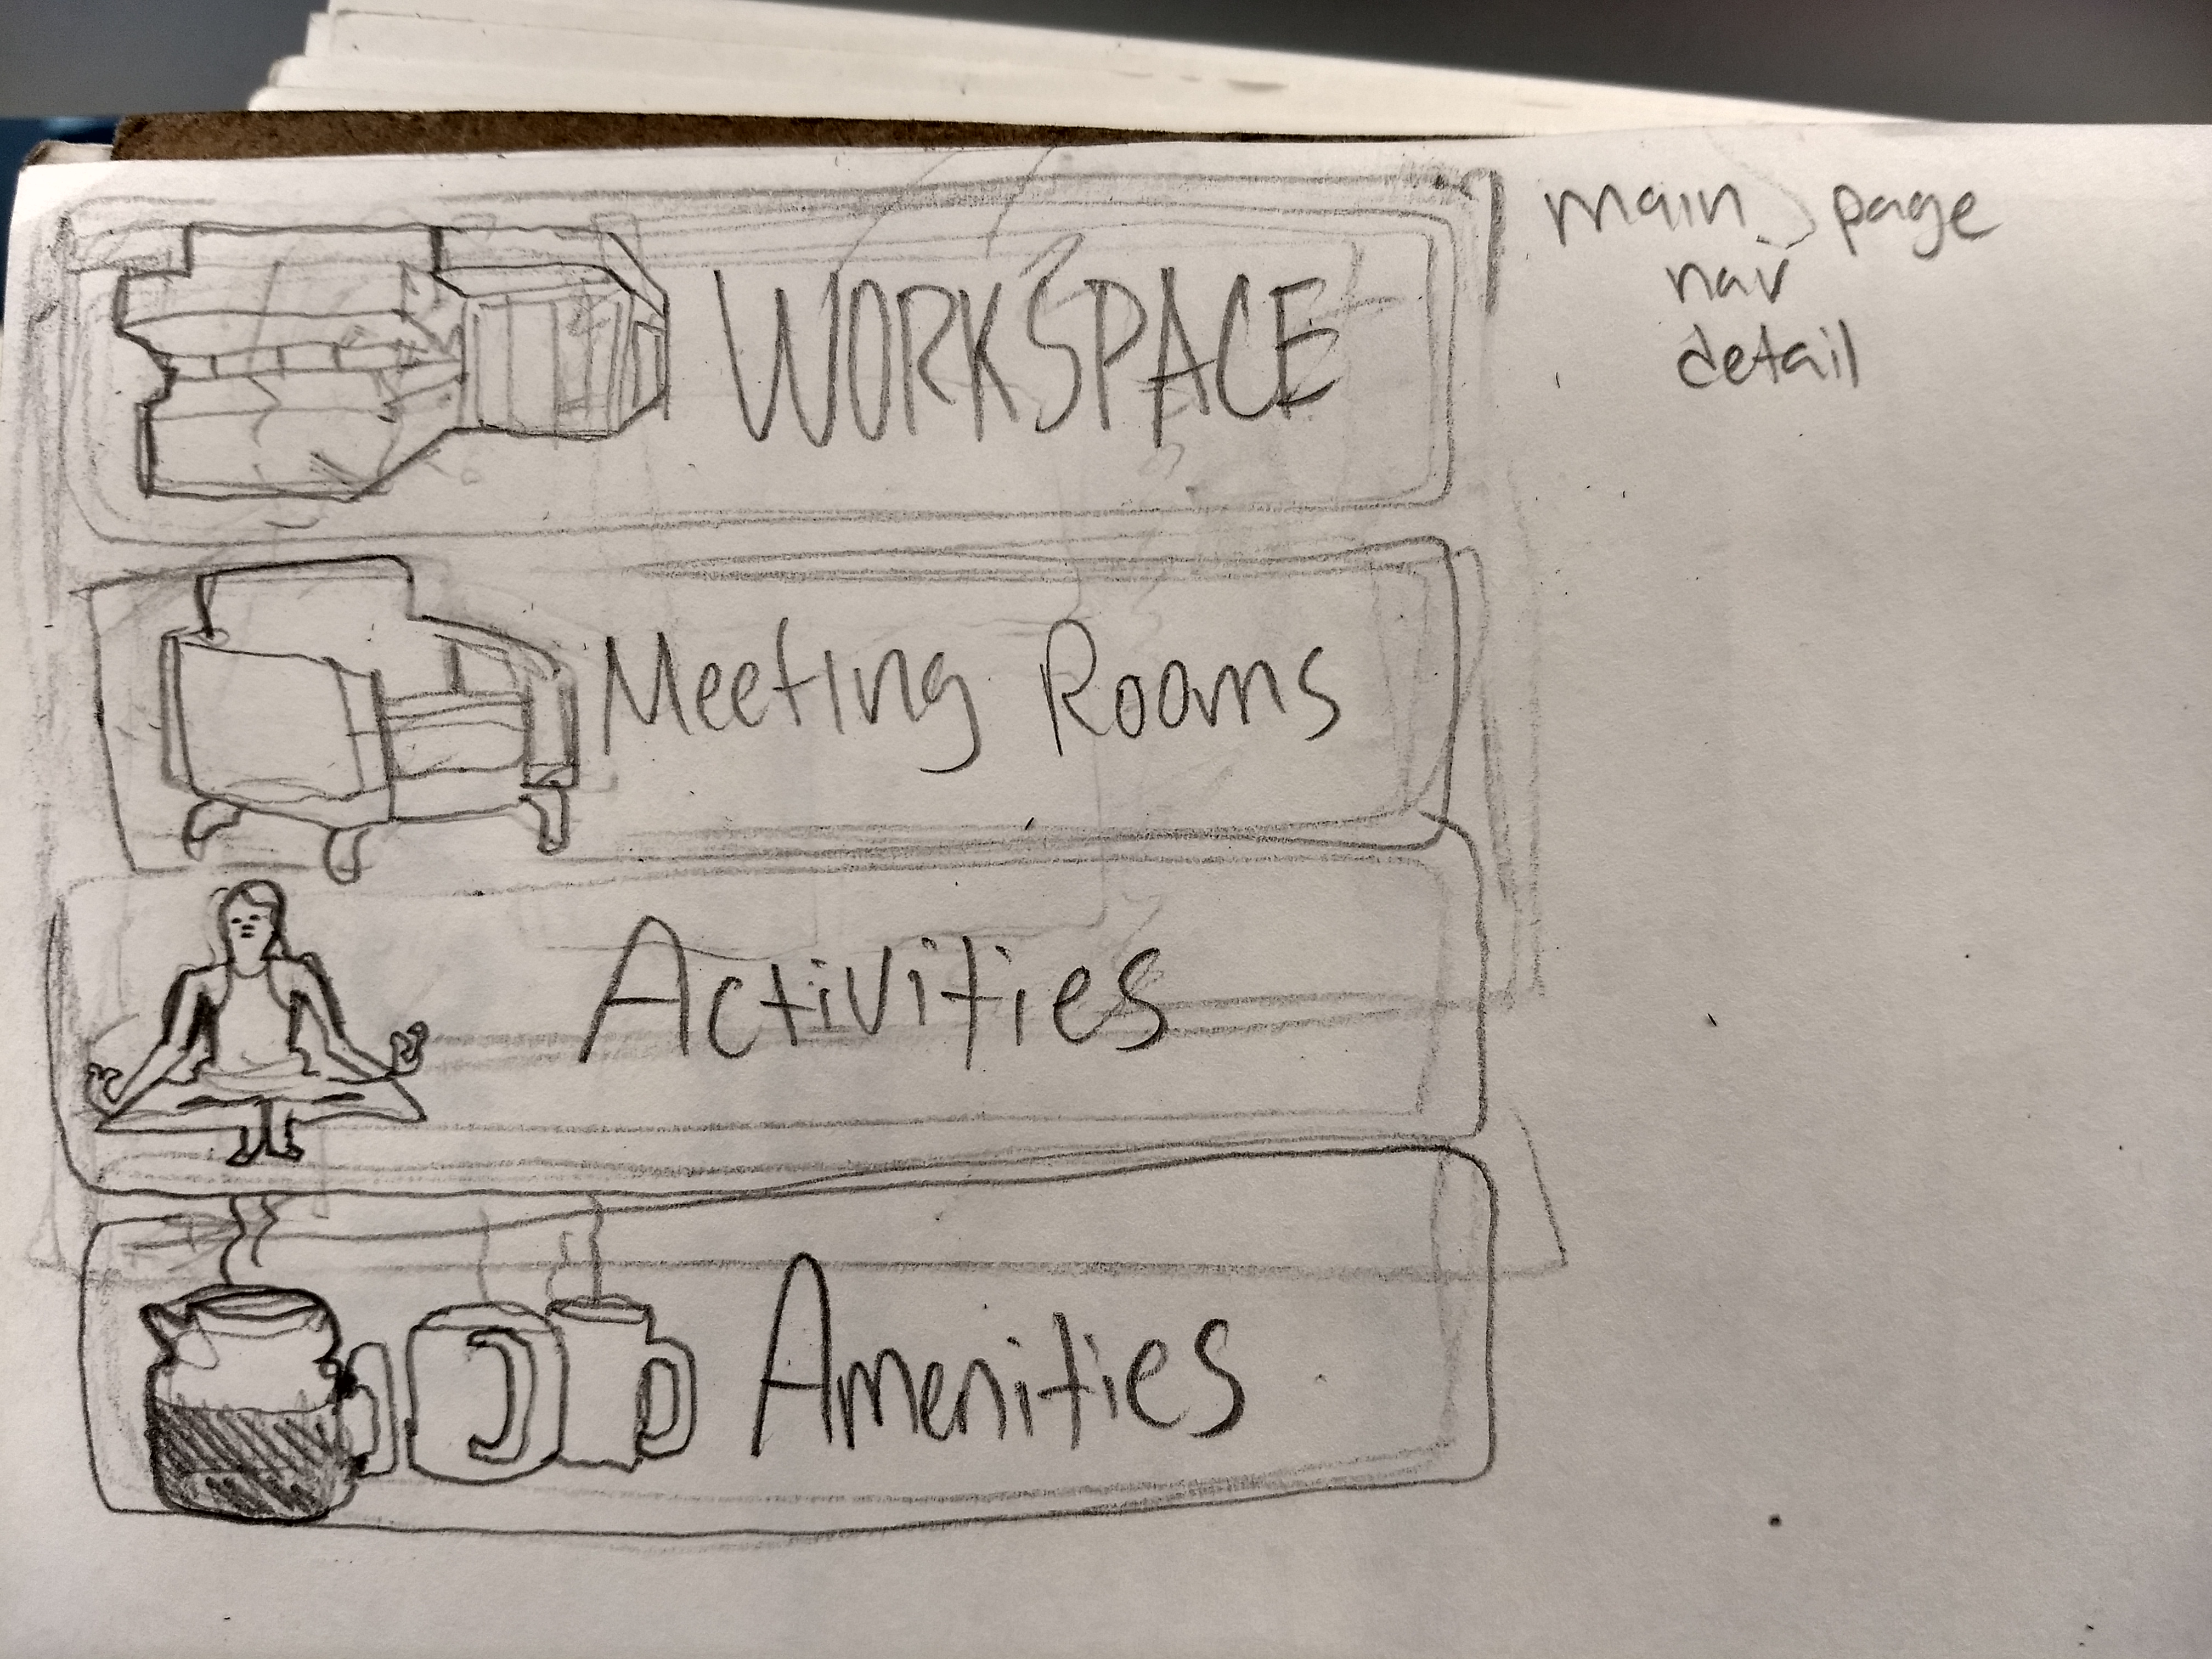 WORKSPACE
Meeting Rooms
Activities
Amenities
main page
nav
detail